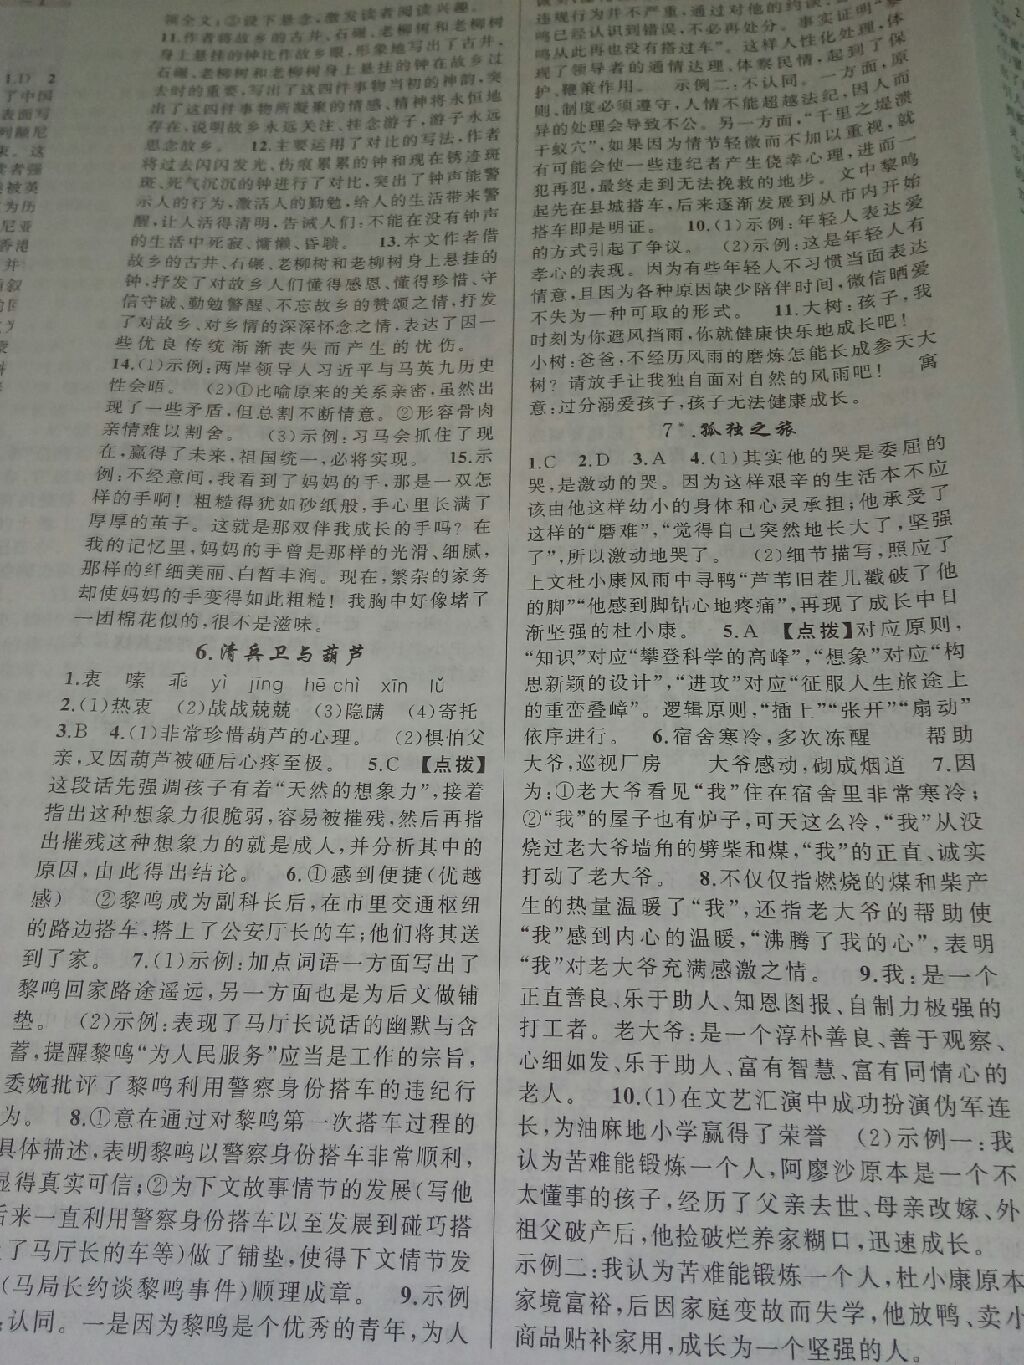 领全文；③设下悬念，激发读者阅读兴趣。
11.作者将故乡的古井、石碾、老柳树和老柳树
身上悬挂的钟比作故乡眼，形象地写出了古井、
石碾、老柳树和老柳树身上悬挂的钟在故乡过
去时的重要，写出了这四件事物当初的神韵，突
出了这四件事物所凝聚的情感、精神将永恒地
存在，说明故乡永远关注、挂念游子，游子永远
思念故乡。 12.主要运用了对比的写法，作者
将过去闪闪发光、伤痕累累的钟和现在锈迹斑
斑、死气沉沉的钟进行了对比，突出了钟声能警
示人的行为，激活人的勤勉，给人的生活带来警
醒，让人活得清明，告诫人们：不能在没有钟声
的生活中死寂、慵懒、昏聩。 13.本文作者借
故乡的古井、石碾、老柳树和老柳树身上悬挂的
钟，抒发了对故乡人们懂得感恩、懂得珍惜、守
信守诚、勤勉警醒、不忘故乡的赞颂之情，抒发
了对故乡、对乡情的深深怀念之情，表达了因一
些优良传统渐渐丧失而产生的忧伤。
14.(1)示例：两岸领导人习近平与马英九历史
性会晤。 (2)①比喻原来的关系亲密，虽然出
现了一些矛盾，但总割不断情意。②形容骨肉
亲情难以割舍。 (3)示例：习马会抓住了现
在，赢得了未来，祖国统一，必将实现。 15.示
例：不经意间，我看到了妈妈的手，那是一双怎
样的手啊！粗糙得犹如砂纸般，手心里长满了
厚厚的茧子。这就是那双伴我成长的手吗？在
我的记忆里，妈妈的手曾是那样的光滑、细腻，
那样的纤细美丽、白皙丰润。现在，繁杂的家务
却使妈妈的手变得如此粗糙！我胸中好像堵了
一团棉花似的，很不是滋味。
6.清兵卫与葫芦
1.衷 嗦 乖 yì jīng hē chì xīn lǚ
2.(1)热衷 (2)战战兢兢 (3)隐瞒 (4)寄托
3.B 4.(1)非常珍惜葫芦的心理。 (2)惧怕父
亲，又因葫芦被砸后心疼至极。 5.C 【点拨】
这段话先强调孩子有着“天然的想象力”，接着
指出这种想象力很脆弱，容易被摧残，然后再指
出摧残这种想象力的就是成人，并分析其中的
原因，由此得出结论。 6.①感到便捷(优越
感) ②黎鸣成为副科长后，在市里交通枢纽
的路边搭车，搭上了公安厅长的车；他们将其送
到了家。 7.(1)示例：加点词语一方面写出了
黎鸣回家路途遥远，另一方面也是为后文做铺
垫。 (2)示例：表现了马厅长说话的幽默与含
蓄，提醒黎鸣“为人民服务”应当是工作的宗旨，
委婉批评了黎鸣利用警察身份搭车的违纪行
为。 8.①意在通过对黎鸣第一次搭车过程的
具体描述，表明黎鸣以警察身份搭车非常顺利，
显得真实可信；②为下文故事情节的发展(写他
后来一直利用警察身份搭车以至发展到碰巧搭
了马厅长的车等)做了铺垫，使得下文情节发
(马局长约谈黎鸣事件)顺理成章。 9.示例
认同。一是因为黎鸣是个优秀的青年，为人
违规行为并不严重，通过对他的约谈，
鸣已经认识到错误，不必再处分。事实证明“黎
鸣从此再也没有搭过车”。这样人性化处理，体
现了领导者的通情达理、体察民情，起到了保
护、鞭策作用。 示例二：不认同。一方面，原
则、制度必须遵守，人情不能超越法纪，因人而
异的处理会导致不公。另一方面，“千里之堤溃
于蚁穴”，如果因为情节轻微而不加以重视，就
有可能会使一些违纪者产生侥幸心理，进而一
犯再犯，最终走到无法挽救的地步。文中黎鸣
起先在县城搭车，后来逐渐发展到从市内开始
搭车即是明证。 10.(1)示例：年轻人表达爱
的方式引起了争议。 (2)示例：这是年轻人有
孝心的表现。因为有些年轻人不习惯当面表达
情意，且因为各种原因缺少陪伴时间，微信晒爱
不失为一种可取的形式。 11.大树：孩子，我
时刻为你遮风挡雨，你就健康快乐地成长吧！
小树：爸爸，不经历风雨的磨炼怎能长成参天大
树？请放手让我独自面对自然的风雨吧！ 寓
意：过分溺爱孩子，孩子无法健康成长。
7*.孤独之旅
1.C 2.D 3.A 4.(1)其实他的哭是委屈的
哭，是激动的哭。因为这样艰辛的生活本不应
该由他这样幼小的身体和心灵承担；他承受了
这样的“磨难”，“觉得自己突然地长大了，坚强
了”，所以激动地哭了。 (2)细节描写，照应了
上文杜小康风雨中寻鸭“芦苇旧茬儿戳破了他
的脚”“他感到脚钻心地疼痛”，再现了成长中日
渐坚强的杜小康。 5.A 【点拨】对应原则，
“知识”对应“攀登科学的高峰”，“想象”对应“构
思新颖的设计”，“进攻”对应“征服人生旅途上
的重峦叠嶂”。逻辑原则，“插上”“张开”“扇动”
依序进行。 6.宿舍寒冷，多次冻醒 帮助
大爷，巡视厂房 大爷感动，砌成烟道 7.因
为：①老大爷看见“我”住在宿舍里非常寒冷；
②“我”的屋子也有炉子，可天这么冷，“我”从没
烧过老大爷墙角的劈柴和煤，“我”的正直、诚实
打动了老大爷。 8.不仅仅指燃烧的煤和柴产
生的热量温暖了“我”，还指老大爷的帮助使
“我”感到内心的温暖，“沸腾了我的心”，表明
“我”对老大爷充满感激之情。 9.我：是一个
正直善良、乐于助人、知恩图报、自制力极强的
打工者。老大爷：是一个淳朴善良、善于观察、
心细如发、乐于助人、富有智慧、富有同情心的
老人。 10.(1)在文艺汇演中成功扮演伪军连
长，为油麻地小学赢得了荣誉 (2)示例一：我
认为苦难能锻炼一个人，阿廖沙原本是一个不
太懂事的孩子，经历了父亲去世、母亲改嫁、外
祖父破产后，他捡破烂养家糊口，迅速成长。
示例二：我认为苦难能锻炼一个人，杜小康原本
家境富裕，后因家庭变故而失学，他放鸭、卖小
商品贴补家用，成长为一个坚强的人。